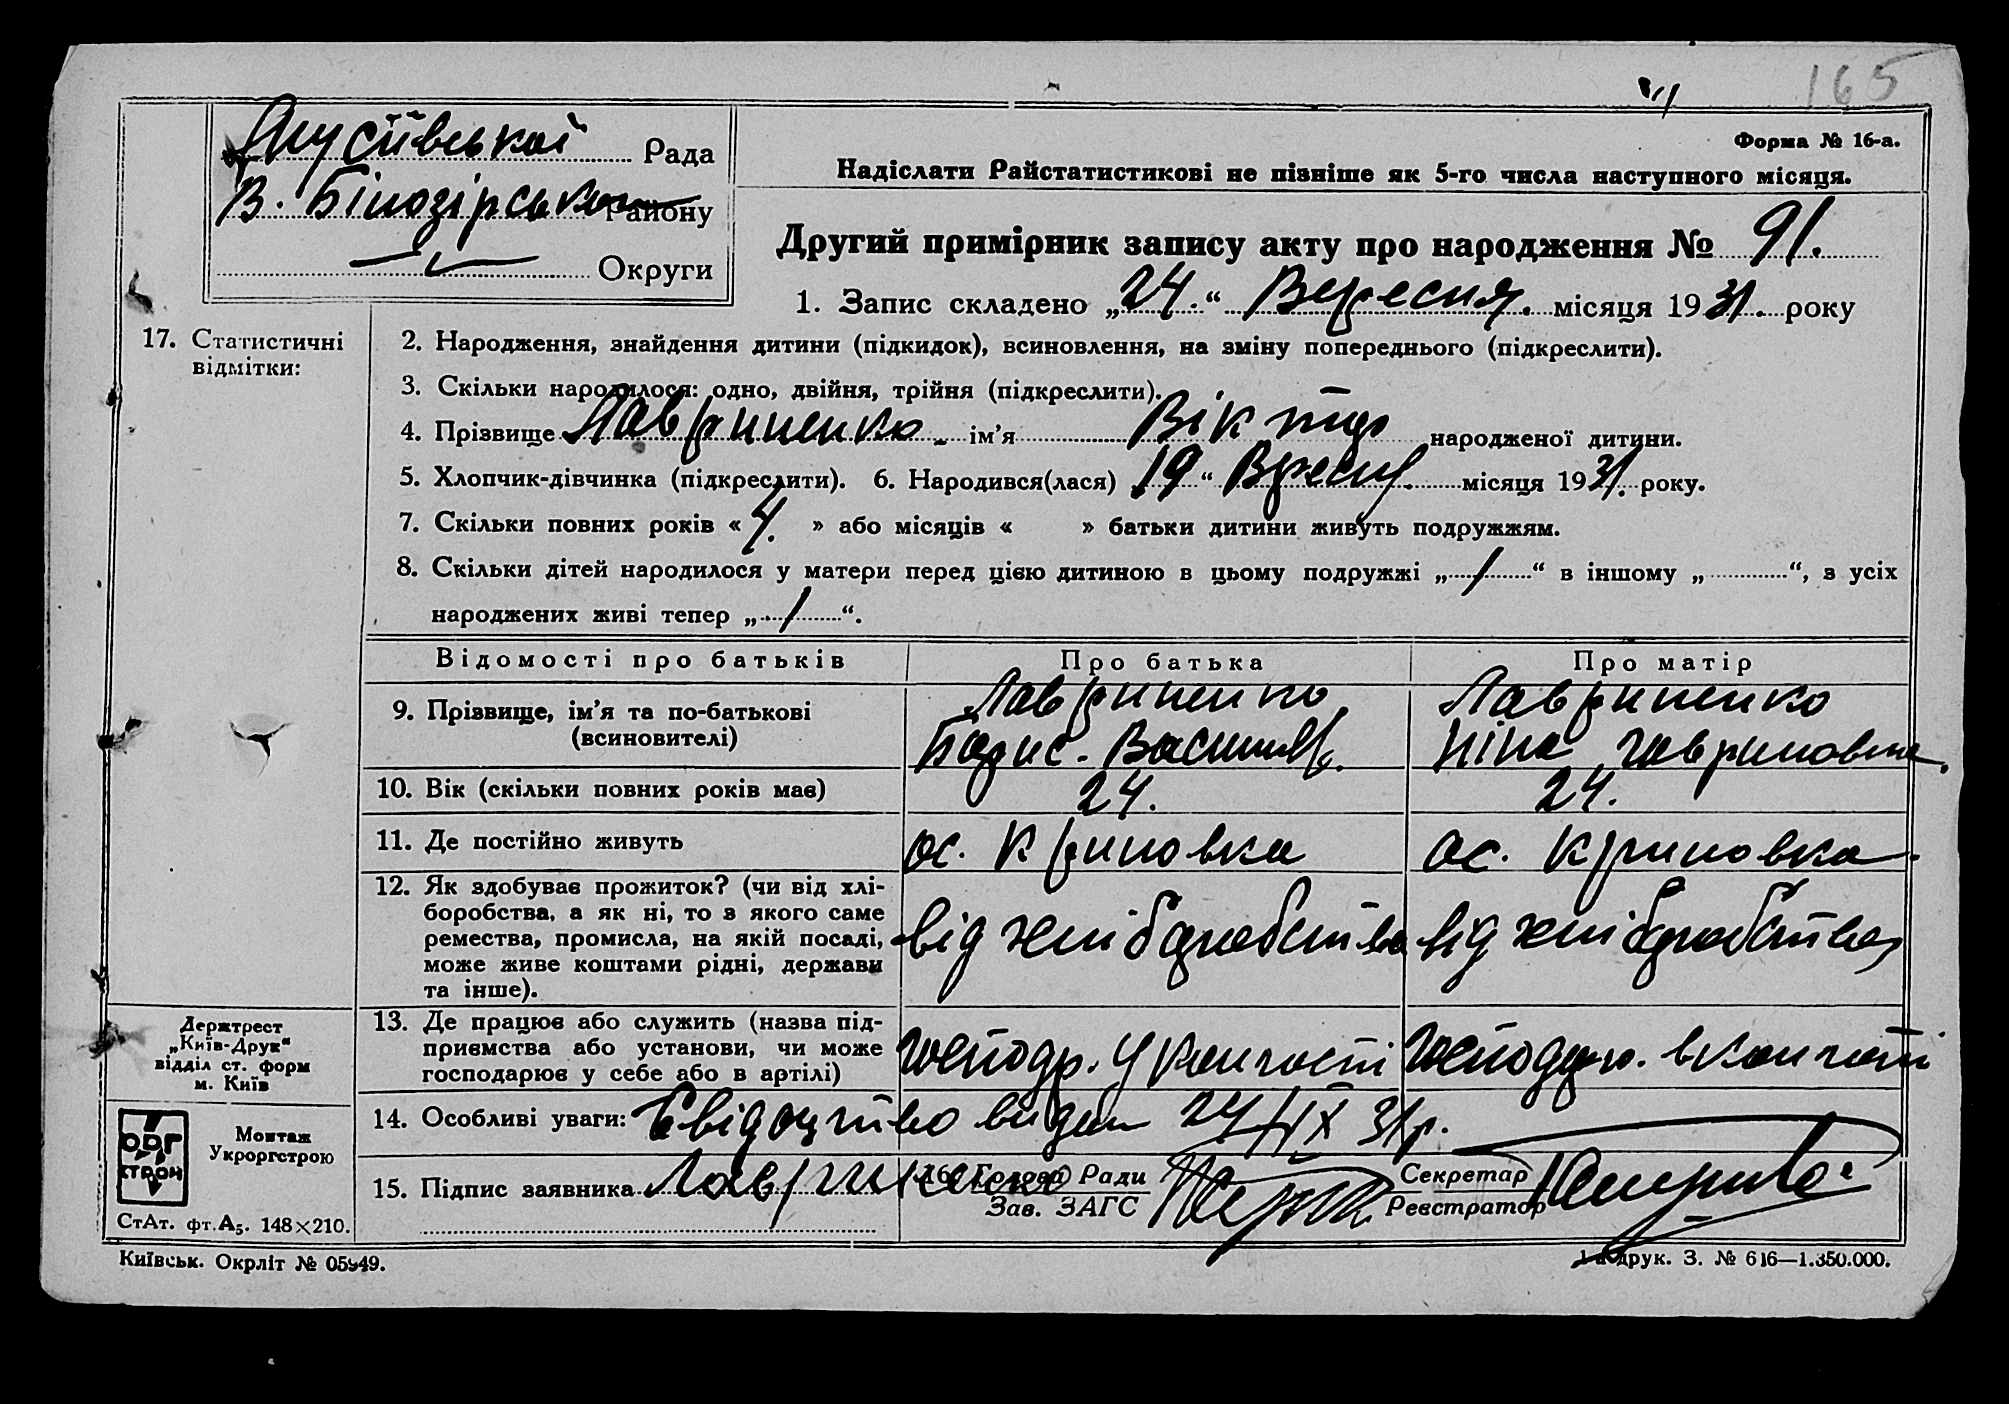 165
Рада
Форма № 16-а.
Надіслати Райстатистикові не пізніше як 5-го числа наступного місяця.
В. Білозірського Району
Округи
Другий примірник запису акту про народження № 91.
1. Запис складено „24.“ Вересня. місяця 1931. року
17. Статистичні
відмітки:
2. Народження, знайдення дитини (підкидок), всиновлення, на зміну попереднього (підкреслити).
3. Скільки народилося: одно, двійня, трійня (підкреслити).
4. Прізвище Лавриненко ім’я Віктор народженої дитини.
5. Хлопчик-дівчинка (підкреслити). 6. Народився(лася) 19“ Вересня. місяця 1931. року.
7. Скільки повних років « 4. » або місяців « » батьки дитини живуть подружжям.
8. Скільки дітей народилося у матери перед цією дитиною в цьому подружжі „ 1 “ в іншому „ “, з усіх
народжених живі тепер „ 1 “.
Відомості про батьків Про батька Про матір
9. Прізвище, ім’я та по-батькові
(всиновителі)
Лавриненко
Борис. Василів.
Лавриненко
Ніна Гавриловна.
10. Вік (скільки повних років має) 24. 24.
11. Де постійно живуть ос. Криловка ос. Криловка.
12. Як здобуває прожиток? (чи від хлі-
боробства, а як ні, то з якого саме
ремества, промисла, на якій посаді,
може живе коштами рідні, держави
та інше).
від хліборобства від хліборобства
13. Де працює або служить (назва під-
приємства або установи, чи може
господарює у себе або в артілі)
Господр. у колгоспі Господр. в колгоспі
Держтрест
„Київ-Друк“
відділ ст. форм
м. Київ
14. Особливі уваги: Свідоцтво видан 24/IX 31 р.
ОРГ
СТРОМ
Монтаж
Укроргстрою
15. Підпис заявника Лавриненко 16. Голова Ради Секретар
Зав. ЗАГС Реєстратор
СтАт. фт. А₅. 148×210.
Київськ. Окрліт № 05949.
друк. З. № 616—1.350.000.